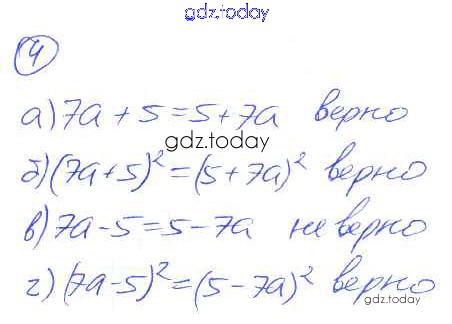 gdz.today
4
а) 7a + 5 = 5 + 7a верно
gdz.today
б) (7a + 5)² = (5 + 7a)² верно
в) 7a - 5 = 5 - 7a не верно
г) (7a - 5)² = (5 - 7a)² верно
gdz.today